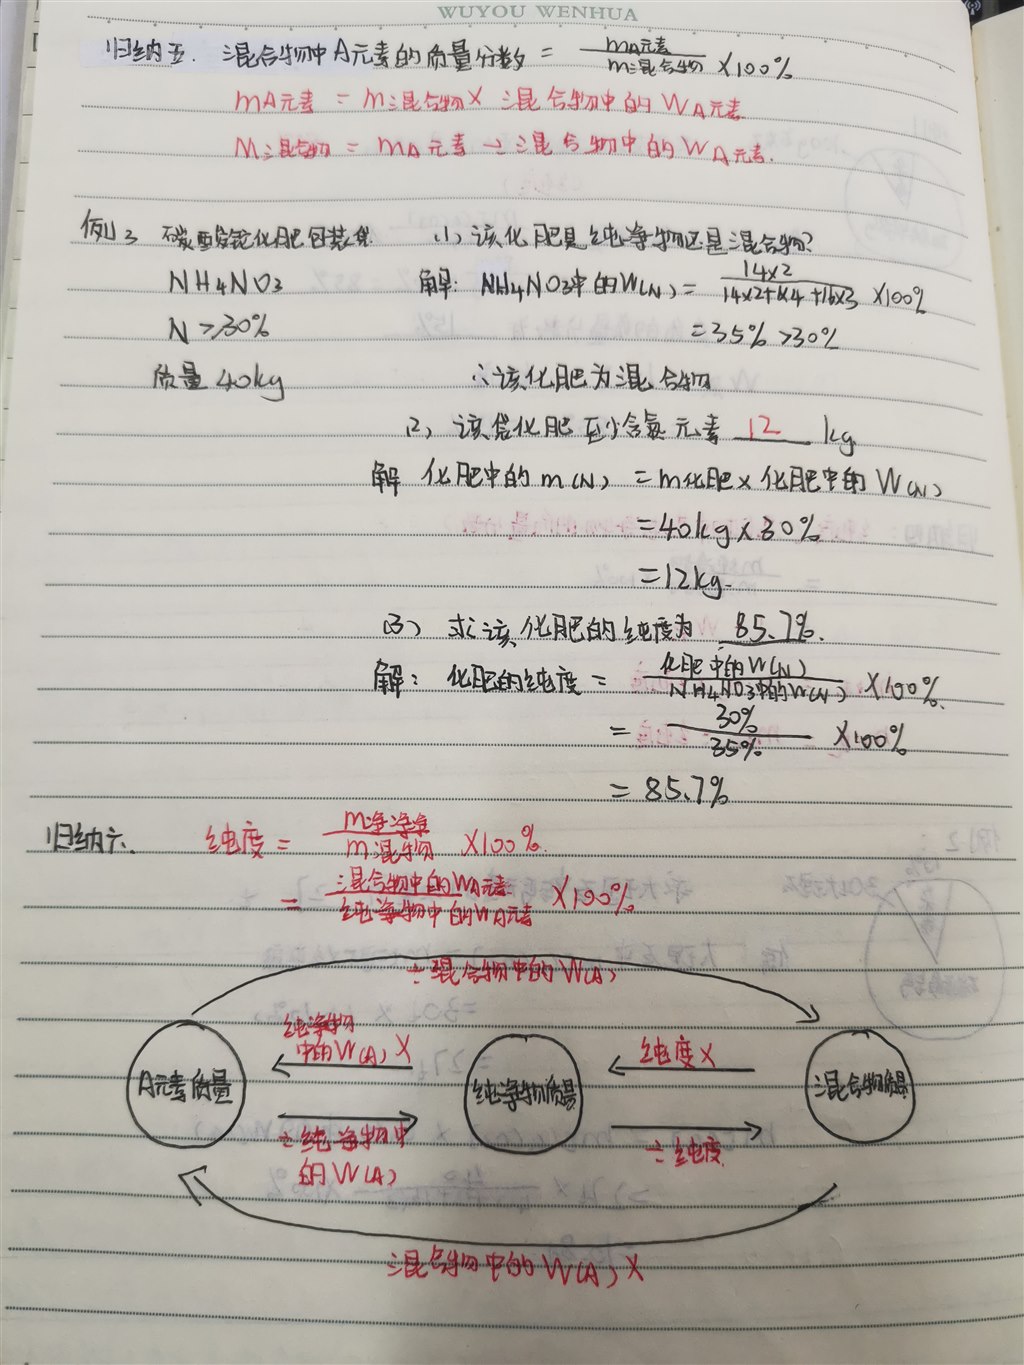 WUYOU WENHUA
归纳五. 混合物中A元素的质量分数 = mA元素/m混合物 ×100%
mA元素 = m混合物× 混合物中的WA元素
m混合物 = mA元素 ÷混合物中的WA元素.
例3 碳酸铵化肥包装袋 (1) 该化肥是纯净物还是混合物?
NH4NO3 解: NH4NO3中的W(N) = 14×2/14×2+1×4+16×3 ×100%
N≥30% =35% >30%
质量40kg ∴该化肥为混合物
(2) 该袋化肥至少含氮元素 12 kg
解 化肥中的m(N) = m化肥×化肥中的W(N)
=40kg×30%
=12kg.
(3) 求该化肥的纯度为 85.7%.
解: 化肥的纯度 = 化肥中的W(N)/NH4NO3中的W(N) ×100%.
= 30%/35% ×100%
= 85.7%
归纳六. 纯度 = m净净净/m混物 ×100%.
= 混合物中的WA元素/纯净物中的WA元素 ×100%
÷混合物中的W(A)
纯净物
中的W(A) ×
纯度×
A元素质量 纯净物质量 混合物质量
÷纯净物中
的W(A)
÷纯度
混合物中的W(A) ×